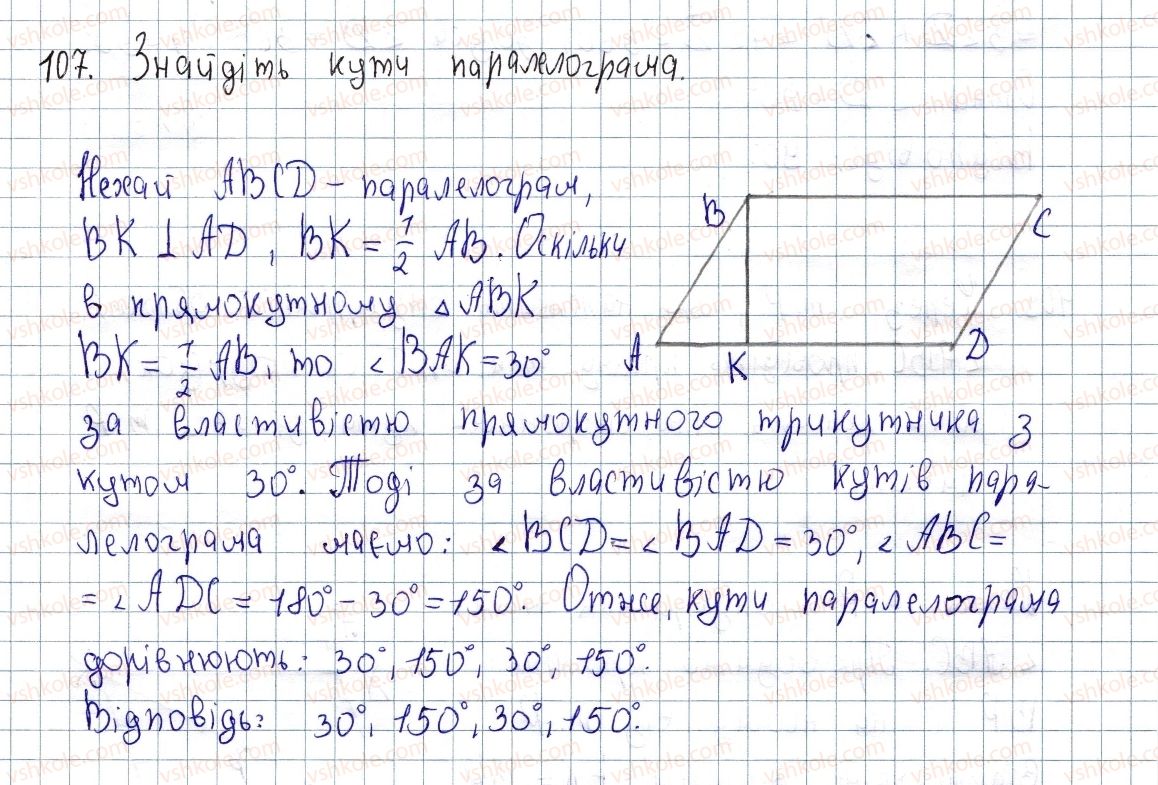 107. Знайдіть кути паралелограма.
Нехай ABCD - паралелограм,
BK ⊥ AD, BK = 1/2 AB. Оскільки
в прямокутному △ABK
BK = 1/2 AB, то ∠BAK = 30°
за властивістю прямокутного трикутника з
кутом 30°. Тоді за властивістю кутів пара-
лелограма маємо: ∠BCD = ∠BAD = 30°, ∠ABC =
= ∠ADC = 180° - 30° = 150°. Отже, кути паралелограма
дорівнюють: 30°, 150°, 30°, 150°.
Відповідь: 30°, 150°, 30°, 150°.
B
C
A
K
D
vshkole.com